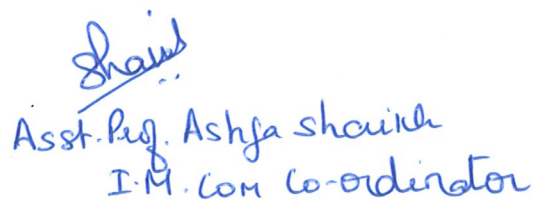 Shaikh
Asst. Prof. Ashfa Shaikh
I.M. Com Co-ordinator